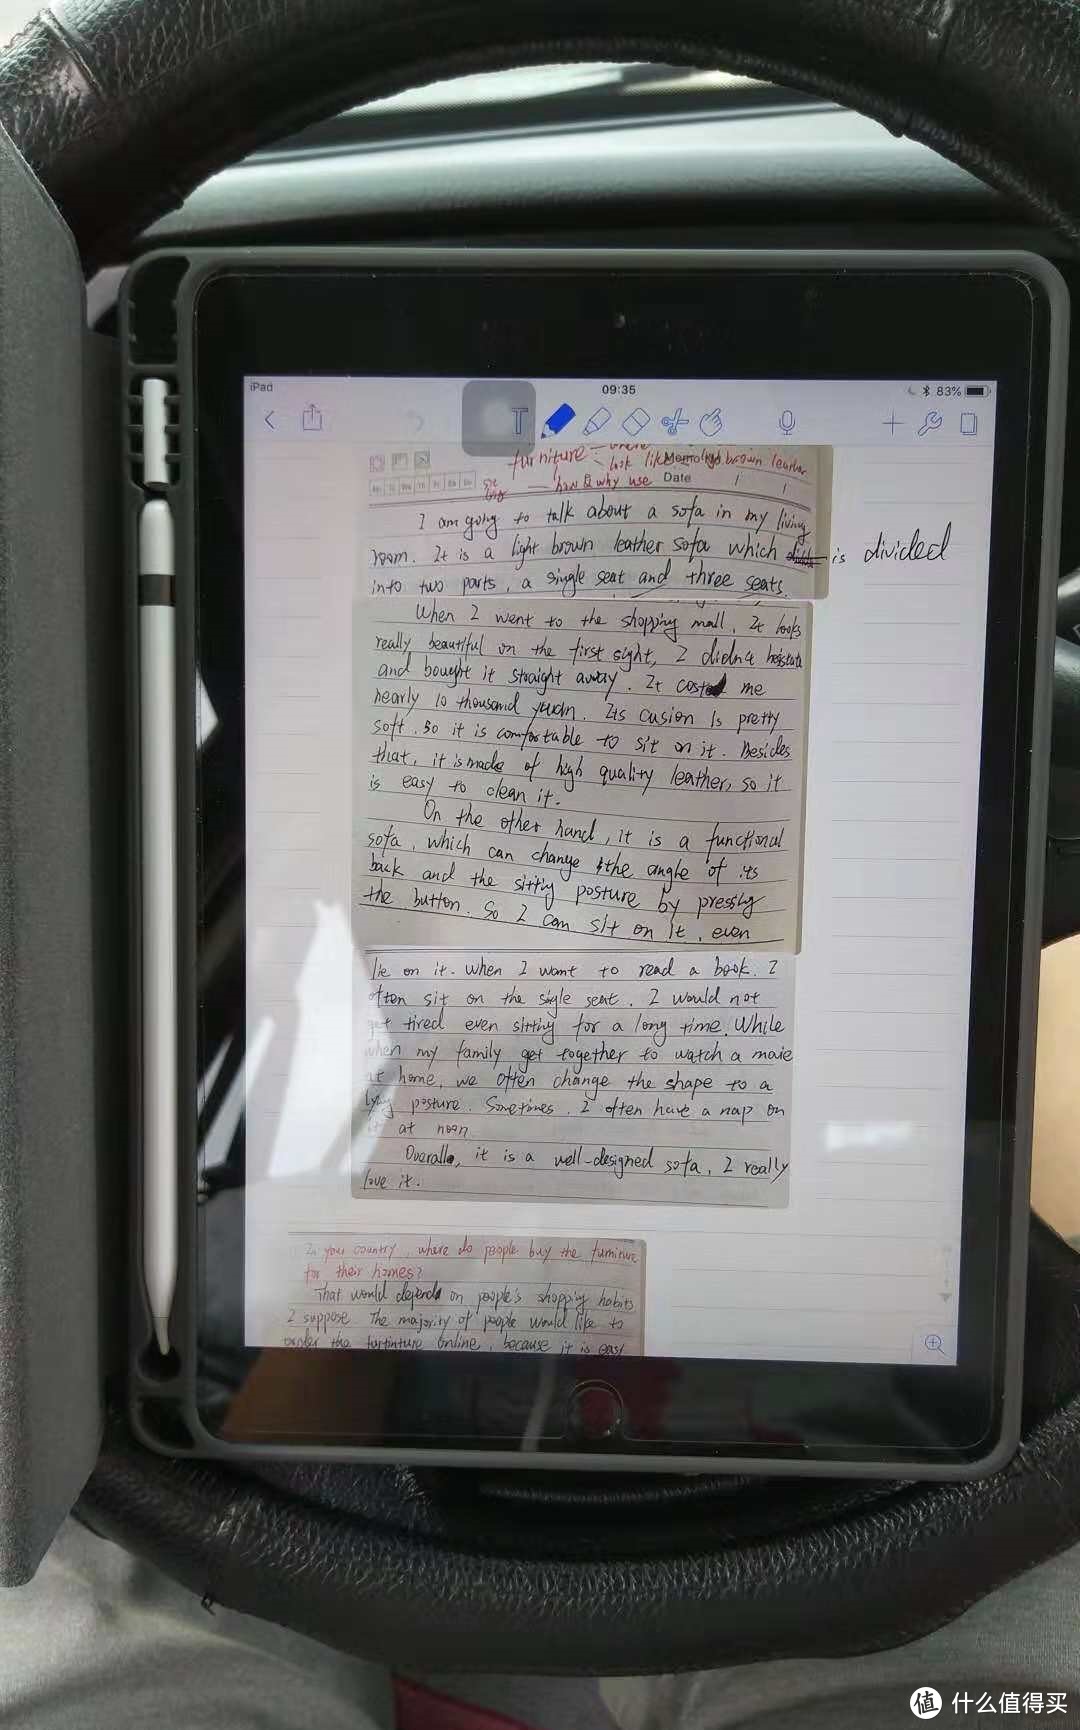 iPad 09:35 83%
T
furniture: where
look like light brown leather
Memo No.
Mo Tu We Th Fr Sa Su
how & why use Date / /
I am going to talk about a sofa in my living
room. It is a light brown leather sofa which is divided
into two parts, a single seat and three seats.
When I went to the shopping mall, It looks
really beautiful on the first sight, I didn't heistate
and bought it straight away. It costed me
nearly 10 thousand yuan. Its cusion is pretty
soft. so it is comfortable to sit on it. Besides
that, it is made of high quality leather, so it
is easy to clean it.
On the other hand, it is a functional
sofa, which can change the angle of its
back and the sitting posture by pressing
the button. So I can sit on it, even
lie on it. When I want to read a book. I
often sit on the sigle seat. I would not
get tired even sitting for a long time. While
when my family get together to watch a movie
at home, we often change the shape to a
lying posture. Sometimes, I often have a nap on
it at noon
Overall, it is a well-designed sofa, I really
love it.
In your country, where do people buy the furniture
for their homes?
That would depend on people's shopping habits
I suppose The majority of people would like to
order the furtinture online, because it is easy
值 什么值得买